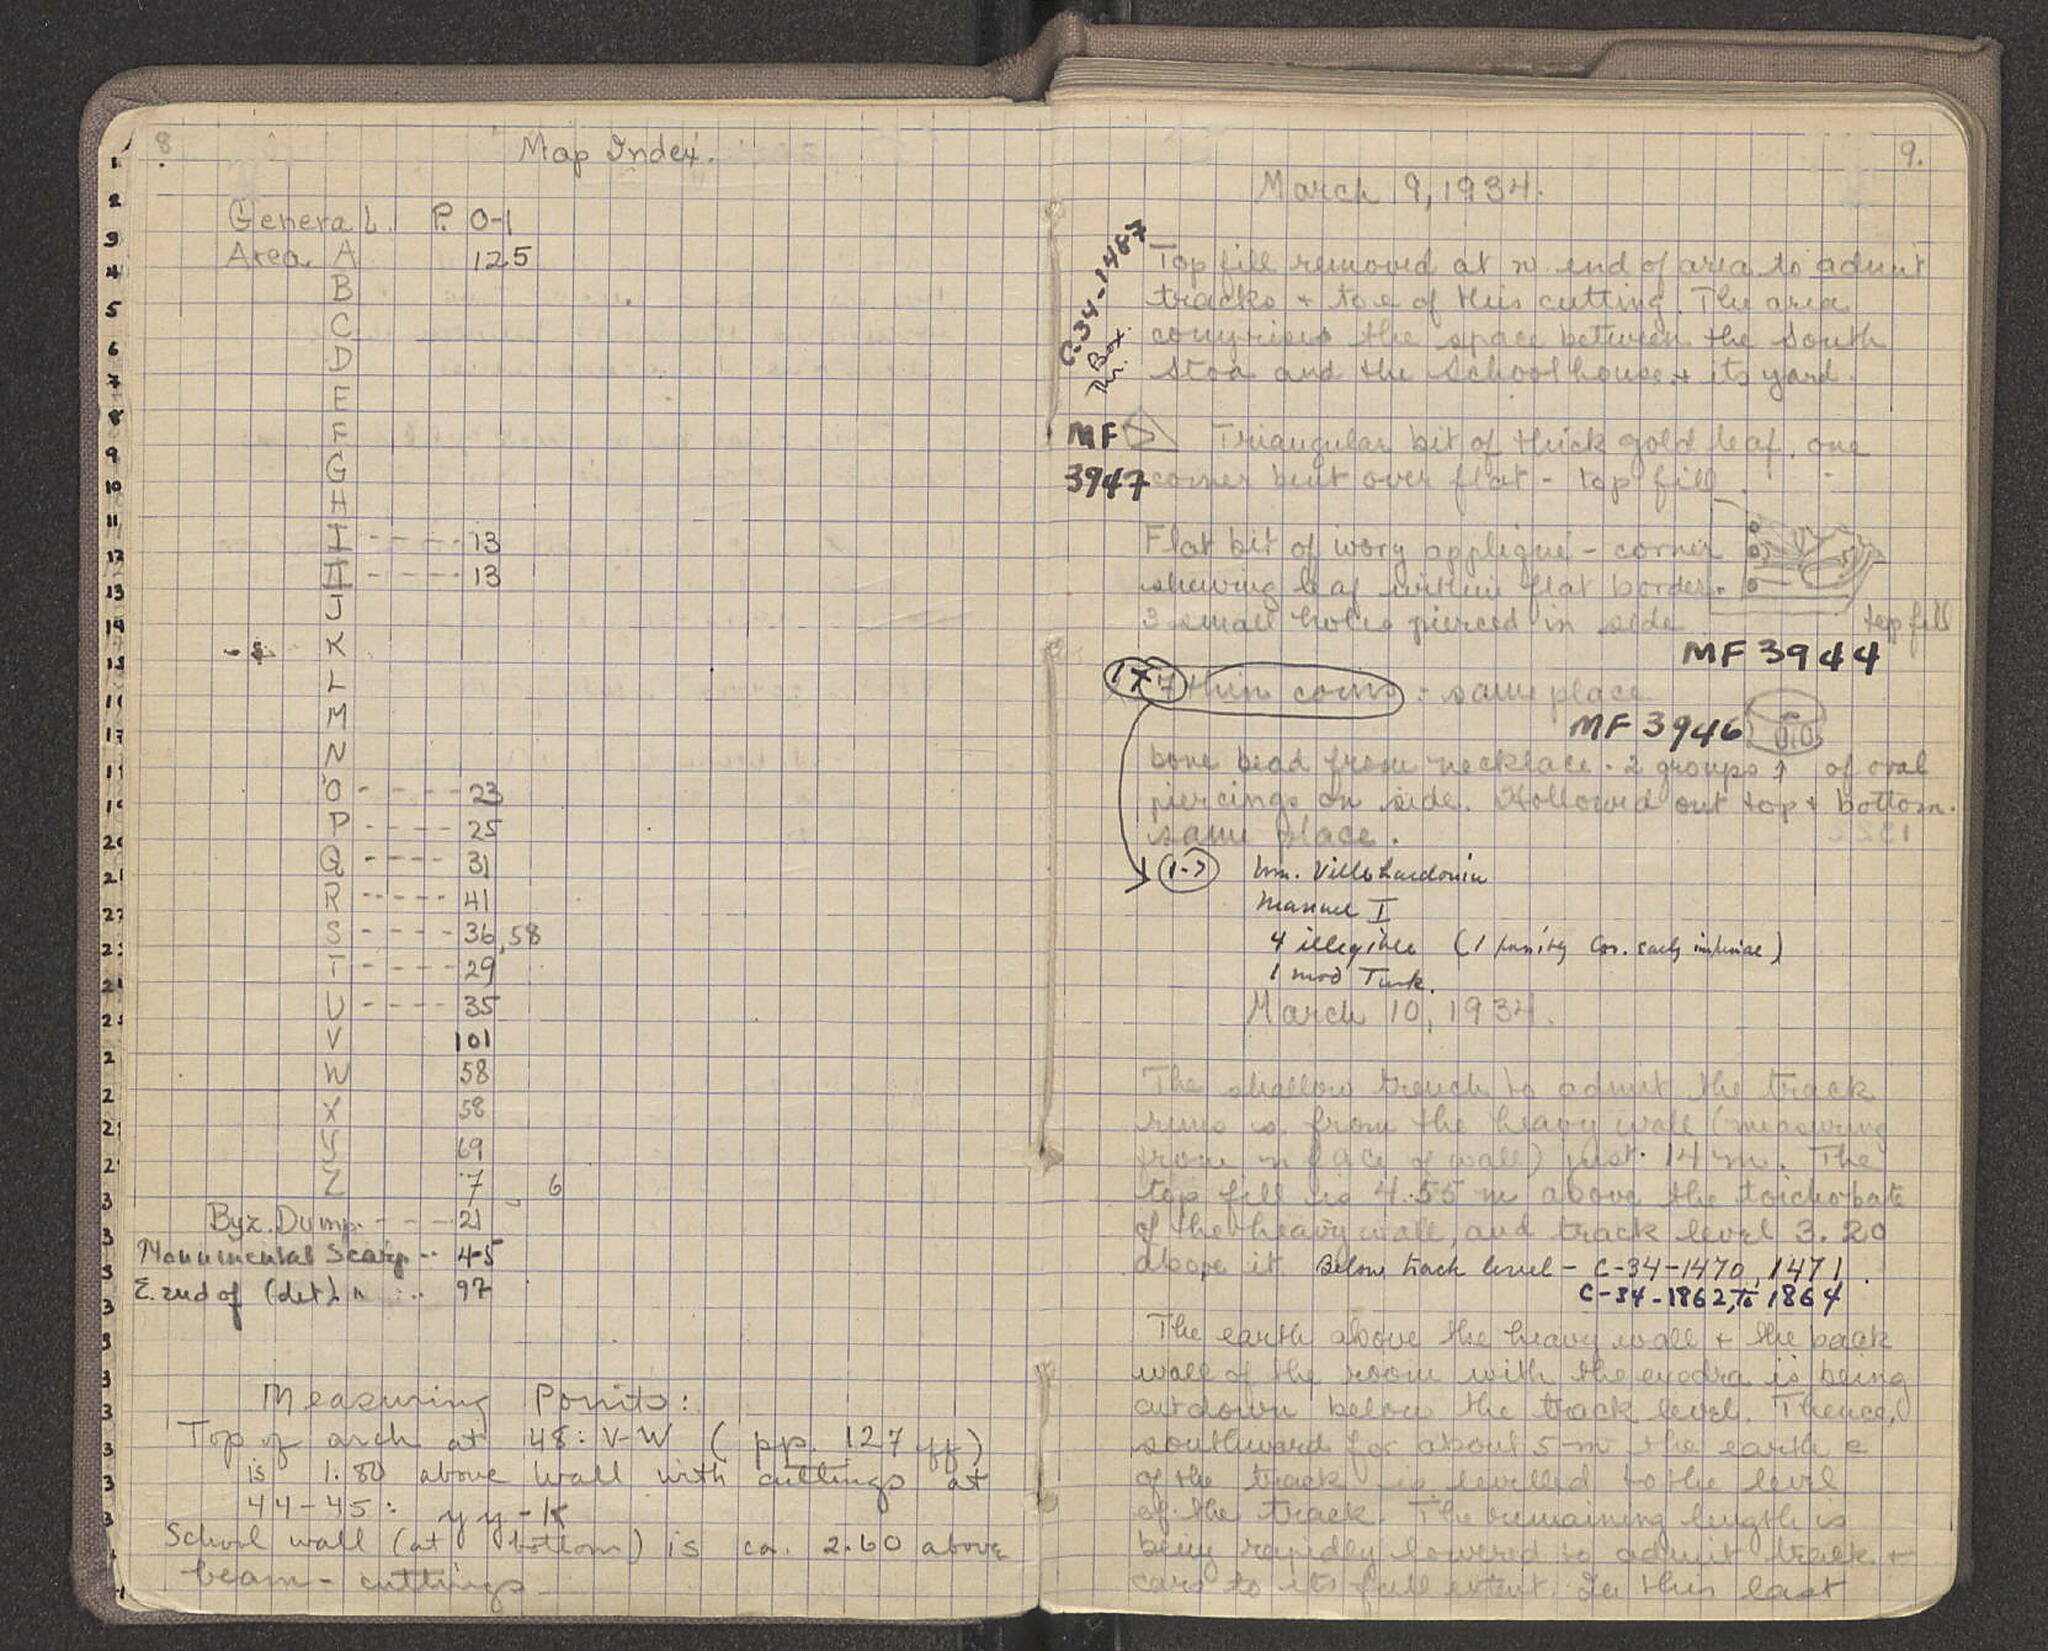 8
Map Index.
General. P. 0-1
Area. A 125
B
C
D
E
F
G
H
I - - - - 13
II - - - - 13
J
K
L
M
N
O - - - - 23
P - - - - 25
Q - - - - 31
R - - - - 41
S - - - - 36, 58
T - - - - 29
U - - - - 35
V 101
W 58
X 58
Y 69
Z 7, 6
Byz. Dump. - - - 21
Monumental Scarp -- 45
E. end of (det.) " 97
Measuring Points:
Top of arch at 48: V-W (pp. 127 ff)
is 1.80 above wall with cuttings at
44-45: yy-
School wall (at bottom) is ca. 2.60 above
beam-cuttings
9.
March 9, 1934.
C-34-1487
Box.
Top fill removed at n. end of area to admit
tracks + to e of this cutting. The area
comprises the space between the South
Stoa and the Schoolhouse + its yard.
MF
3947
Triangular bit of thick gold leaf, one
corner bent over flat - top fill
Flat bit of ivory appliqué - corner
shewing leaf within flat border.
3 small holes pierced in side top fill
MF 3944
17 7 thin coins - same place
MF 3946
bone bead from necklace. 2 groups of oral
piercings on side. Hollowed out top + bottom.
same place.
1-7 Wm. Villehardouin
Manuel I
4 illegible (1 Cor. early imperial)
1 mod Turk.
March 10, 1934.
The shallow trench to admit the track
runs s. from the heavy wall (measuring
from n face of wall) just 14 m. The
top fill is 4.55 m above the toichobate
of the heavy wall, and track level 3.20
above it. Below track level - C-34-1470, 1471.
C-34-1862, to 1864
The earth above the heavy wall + the back
wall of the room with the exedra is being
cut down below the track level. Thence,
southward for about 5 m the earth e
of the track is levelled to the level
of the track. The remaining length is
being rapidly lowered to admit track +
cars to its full extent. In this last